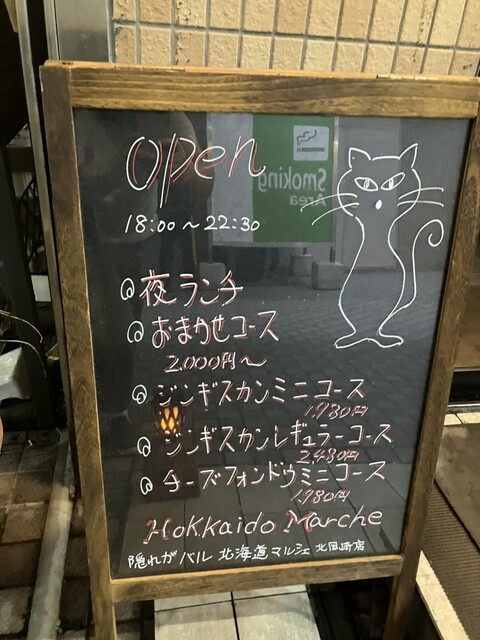 open
18:00～22:30
Smoking
Area
夜ランチ
おまかせコース
2.000円～
ジンギスカンミニコース
1,980円
ジンギスカンレギュラーコース
2,480円
チーズフォンドウミニコース
1,980円
Hokkaido Marche
隠れがバル 北海道マルシェ 北岡崎店